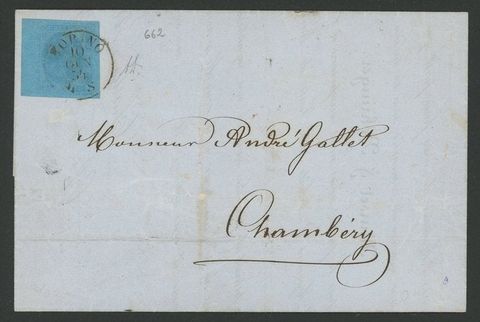 662
TORINO
10
GEN
54
Monsieur André Gallet
Chambéry